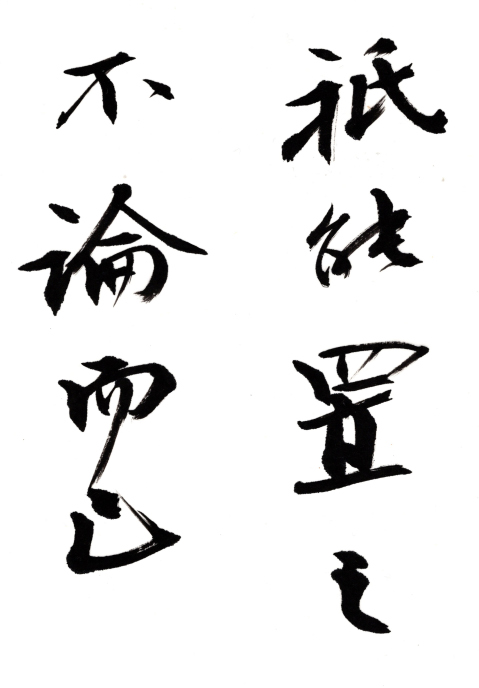 祇能置之
不論而已